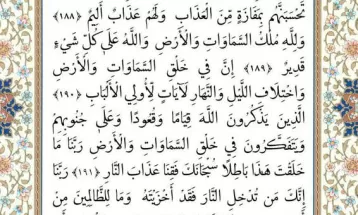 تَحْسَبَنَّهُم بِمَفَازَةٍ مِّنَ الْعَذَابِ وَلَهُمْ عَذَابٌ أَلِيمٌ ﴿١٨٨﴾
وَلِلَّهِ مُلْكُ السَّمَاوَاتِ وَالْأَرْضِ وَاللَّهُ عَلَىٰ كُلِّ شَيْءٍ
قَدِيرٌ ﴿١٨٩﴾ إِنَّ فِي خَلْقِ السَّمَاوَاتِ وَالْأَرْضِ
وَاخْتِلَافِ اللَّيْلِ وَالنَّهَارِ لَآيَاتٍ لِّأُولِي الْأَلْبَابِ ﴿١٩٠﴾
الَّذِينَ يَذْكُرُونَ اللَّهَ قِيَامًا وَقُعُودًا وَعَلَىٰ جُنُوبِهِمْ
وَيَتَفَكَّرُونَ فِي خَلْقِ السَّمَاوَاتِ وَالْأَرْضِ رَبَّنَا مَا
خَلَقْتَ هَٰذَا بَاطِلًا سُبْحَانَكَ فَقِنَا عَذَابَ النَّارِ ﴿١٩١﴾ رَبَّنَا
إِنَّكَ مَن تُدْخِلِ النَّارَ فَقَدْ أَخْزَيْتَهُ وَمَا لِلظَّالِمِينَ مِنْ